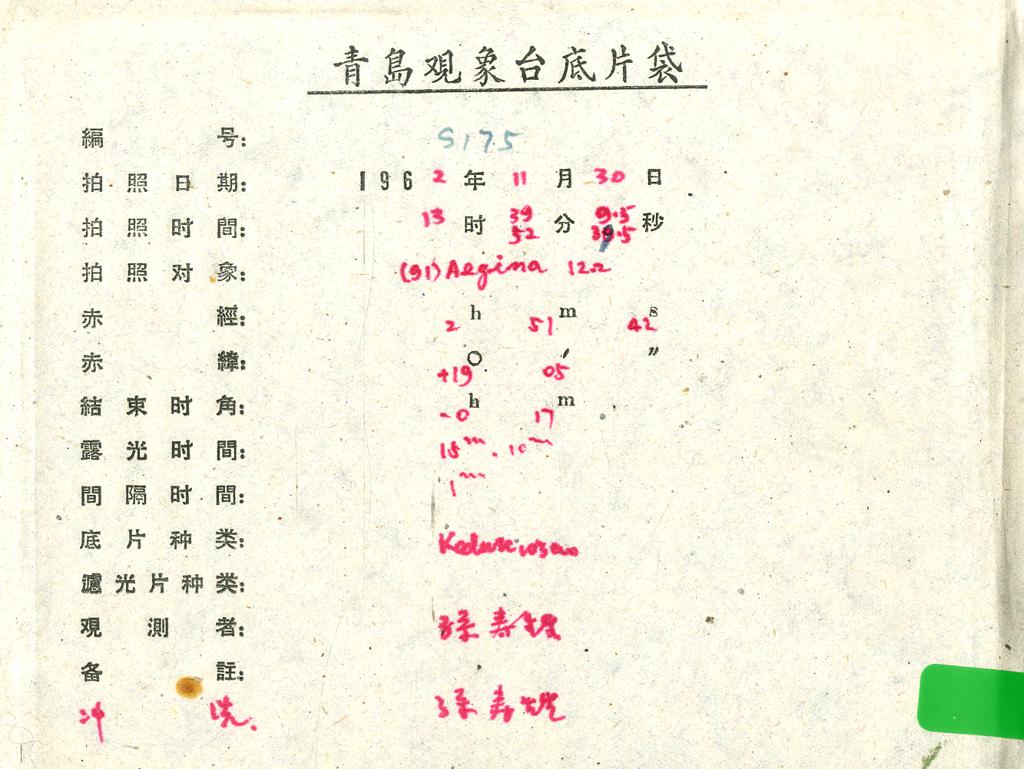 青島观象台底片袋
編号: S175
拍照日期: 1962年11月30日
拍照时間: 13时 39分 9.5秒
52 39.5
拍照对象: (91) Aegina 12.2
赤經: 2h 51m 42s
赤緯: +19° 05′ ″
結束时角: -0h 17m
露光时間: 15m . 10m
間隔时間: 1m
底片种类:
濾光片种类:
观測者: 孫寿
备註:
冲洗. 孫寿